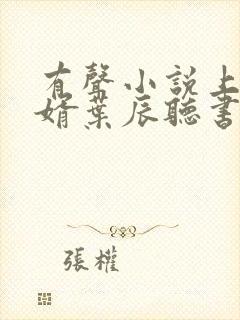 有聲小說上
婿葉辰聽書
張權